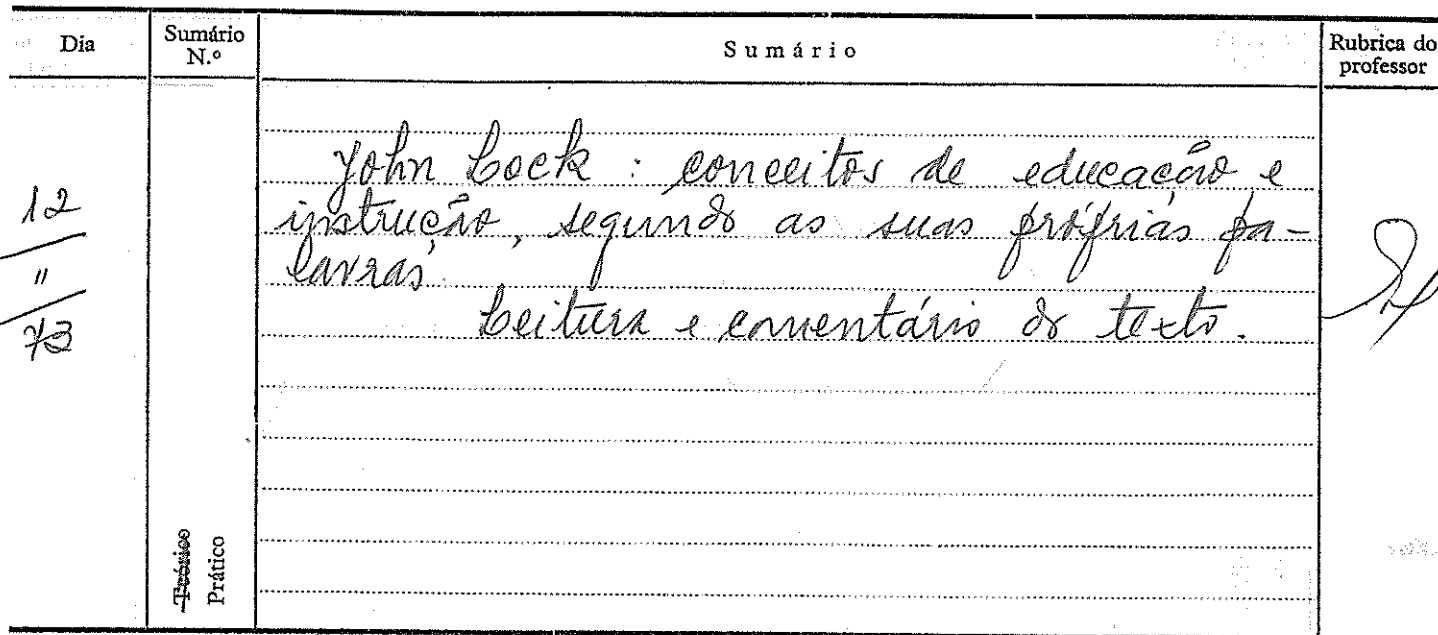 Dia
Sumário
N.º
Sumário
Rubrica do
professor
12
11
73
John Lock : conceitos de educação e
instrução, segundo as suas próprias pa-
lavras.
Leitura e comentário do texto.
Teórico
Prático